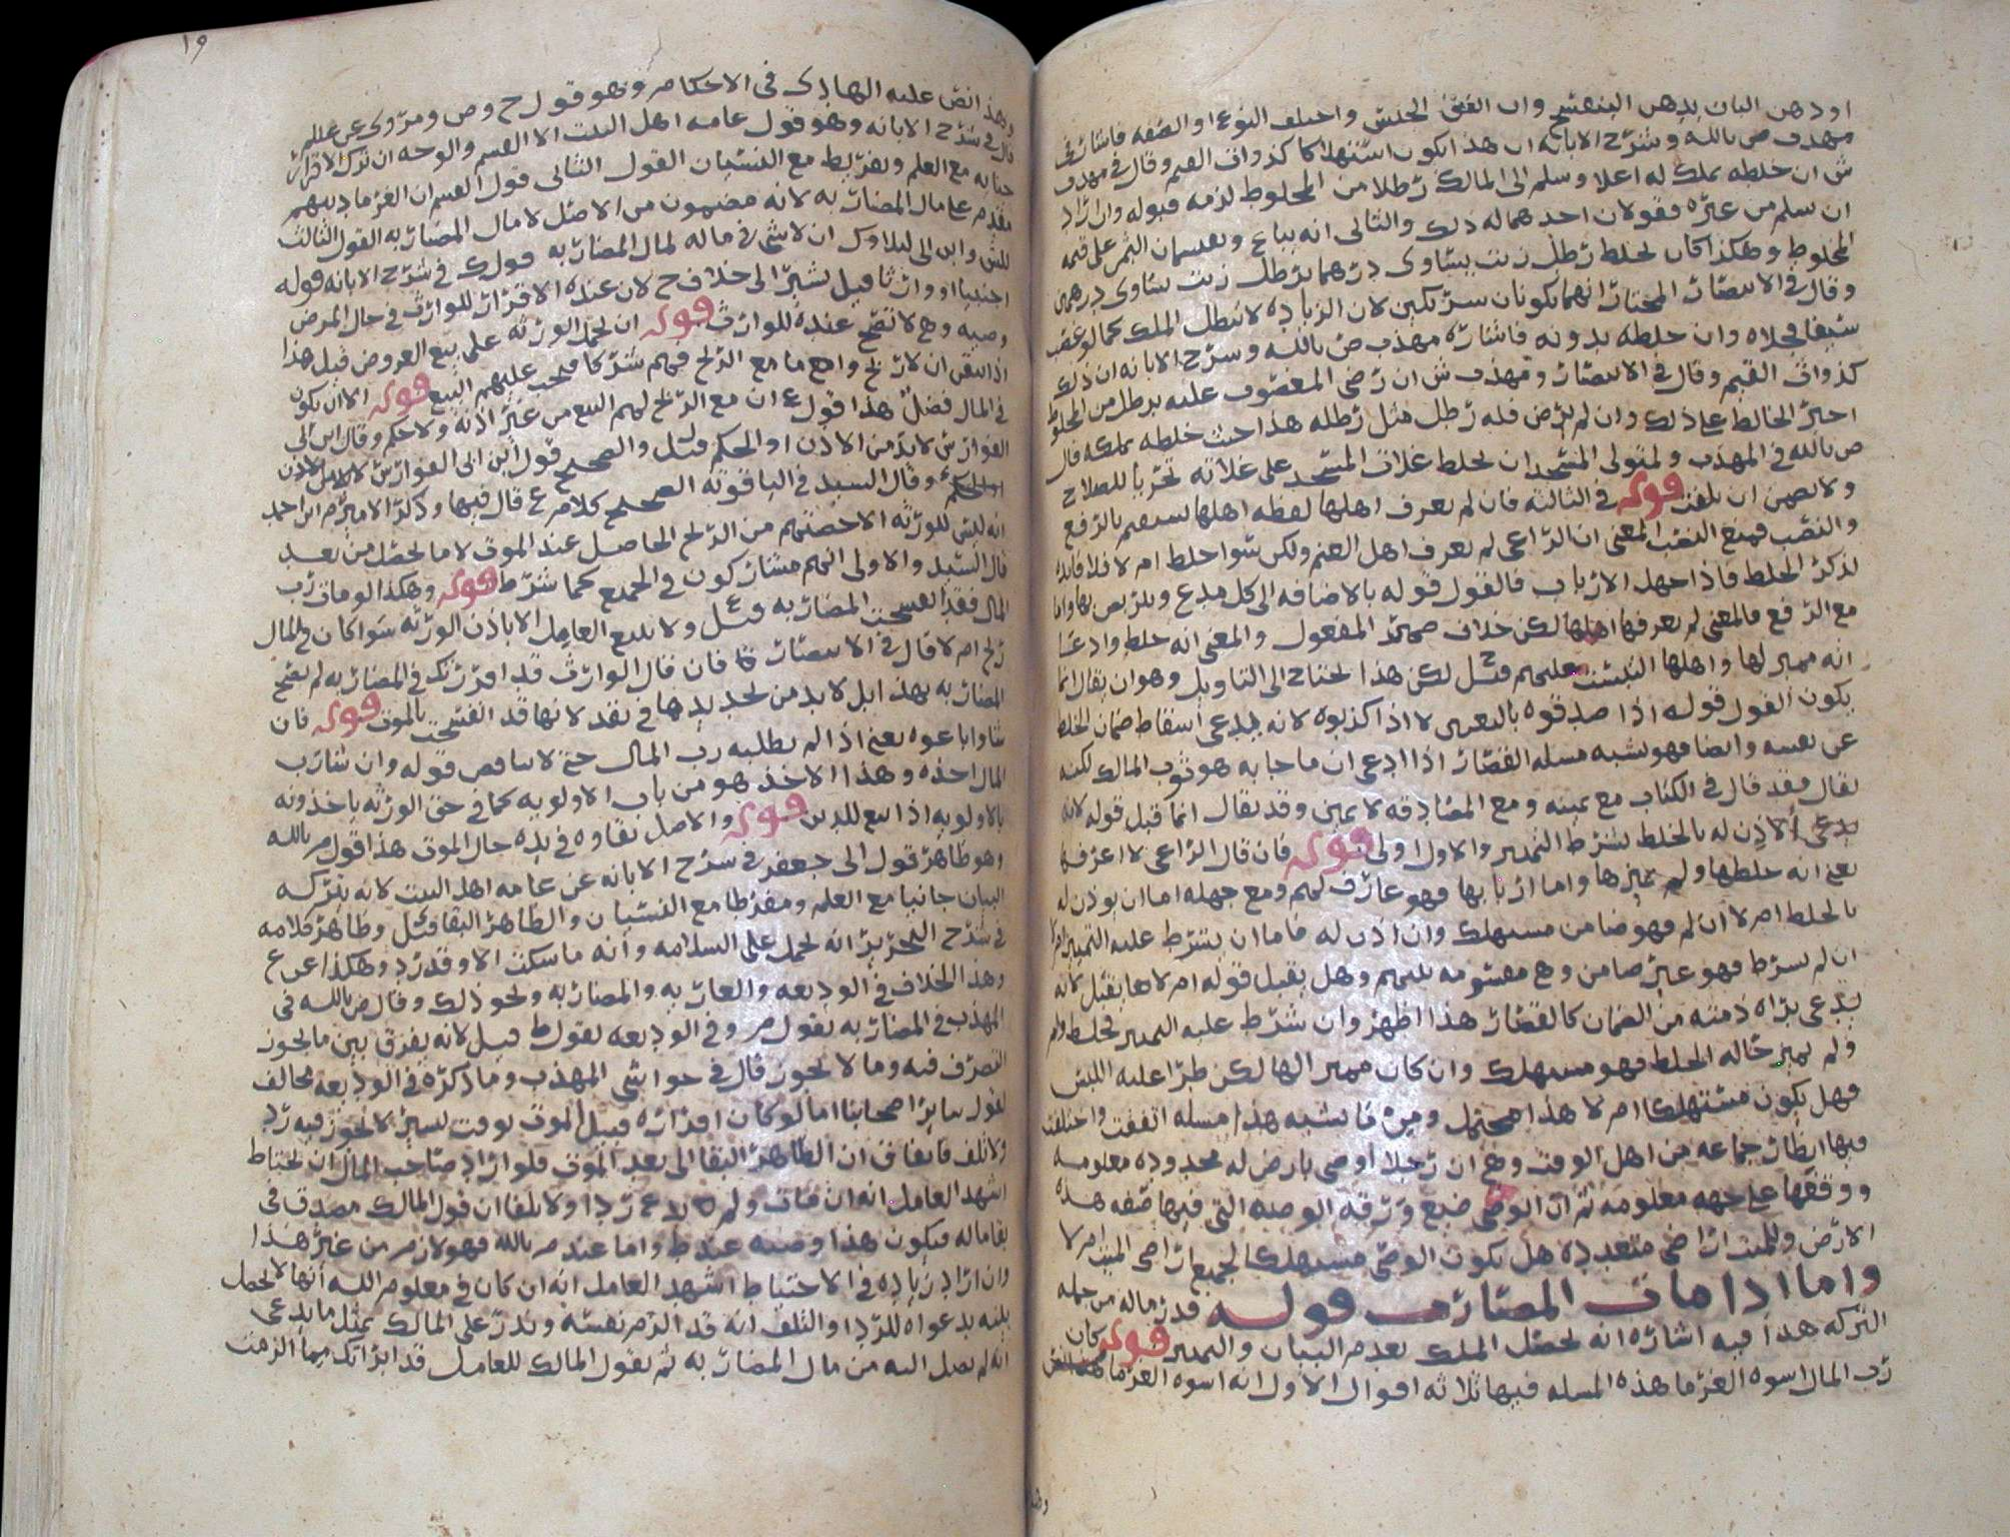 او دهن البان بدهن البنفسج وان اتفق الجنس واختلف النوع او الصفه فاشار في
مهذب ص بالله وشرح الابانه ان هذا يكون استهلاكا كذوات القيم وقال في مهذب
ش ان خلطه بملك له اعلا وسلم الى المالك رطلا من المخلوط لزمه قبوله وان اراد
ان يسلم من غيره فقولان احدهما له ذلك والثاني انه يباع ويقسمان الثمن على قيمه
المخلوط وهكذا كان يخلط رطل زيت يساوي درهما برطل زيت يساوي درهمين
وقال في الانتصار المختار انهما يكونان شريكين لان الزياده لا تبطل الملك كما لو غصب
وان خلطه بدونه فاشاره مهذب ص بالله وشرح الابانه ان ذلك
كذوات القيم وقال في الانتصار ومهذب ش ان رضي المغصوب عليه برطل من المخلوط
اجبر الخالط على ذلك وان لم يرض فله رطل مثل رطله هذا حيث خلطه بملكه قال
ص بالله في المهذب ولمتولي المسجد ان يخلط غلات المسجد على غلاته تحريا للصلاح
ولا يضمن ان تلفت قوله في الثالثه فان لم يعرف اهلها لفظه اهلها بالرفع
والنصب فمع النصب المعنى ان الراعي لم يعرف اهل الغنم ولكن سوا خلط ام لا فلا فائده
لذكر الخلط فاذا جهل الارباب فالقول قوله بالاضافه الى كل مدع واما
مع الرفع فالمعنى لم يعرفها اهلها لكن حذف ضمير المفعول والمعنى انه خلط وادعا
انه مميز لها واهلها التبست عليهم قيل ح لكن هذا يحتاج الى التاويل وهو ان يقال انما
يكون القول قوله اذا صدقوه بالتعيين لا اذا كذبوه لانه يدعي اسقاط ضمان الخلط
عن نفسه وايضا فهو يشبه مسله القصار اذا ادعى ان ما جا به هو ثوب المالك لكنه
يقال فقد قال في الكتاب مع يمينه ومع المصادقه لا يمين وقد يقال انما قبل قوله لانه
يدعي الاذن له بالخلط بشرط التمييز والاول اولى قوله فان قال الراعي لا اعرفها
يعني انه خلطها ولم يميزها واما اربابها فهو عارف لهم ومع جهله اما ان يوذن له
بالخلط ام لا ان لم فهو ضامن مستهلك وان اذن له فاما ان يشرط عليه التمييز ام لا
ان لم يشرط فهو غير ضامن وهي مقسومه بينهم وهل يقبل قوله ام لا ها يقبل لانه
يدعي براه ذمته من الضمان كالقصار هذا اظهر وان شرط عليه التمييز فخلط ولم
ولم يميز حاله الخلط فهو مستهلك وان كان مميز الها لكن طرا عليه اللبس
فهل يكون مستهلكا ام لا هذا محتمل ومن ما يشبه هذا مسله اتفقت واختلفت
فيها انظار جماعه من اهل الوقت وهي ان رجلا اوصى بارض له محدوده معلومه
ووقفها على جهه معلومه ثم ان الوصي ضيع ورقه الوصيه التي فيها صفه هذه
الارض وللميت اراضي متعدده هل يكون الوصي مستهلكا لجميع اراضي الميت ام لا
واما اذا مات المضارب قوله قدر ماله من جمله
التركه هذا فيه اشاره انه يحصل الملك بعدم البيان والتمييز قوله كان
رب المال اسوه الغرما هذه المسله فيها ثلاثه اقوال الاول انه اسوه الغرما
١٩
وهذا نص عليه الهادي في الاحكام وهو قول ح وص ومروي عن علي
قال في شرح الابانه وهو قول عامه اهل البيت الا القسم والوجه ان ترك الاقرار
جنايه مع العلم وتفريط مع النسيان القول الثاني قول القسم ان الغرما دينهم
مقدم على مال المضاربه لانه مضمون من الاصل لا مال المضاربه القول الثالث
للش وابن ابي ليلا وك ان لا شي في ماله لمال المضاربه قوله في شرح الابانه قوله
اجنبيا او وارثا قيل يشير الى خلاف ح لان عنده الاقرار للوارث في حال المرض
وصيه وهي لا تصح عنده للوارث قوله ان لحمل الورثه على بيع العروض قبل هذا
اذا تيقن ان لا ربح واما مع الربح فهم شركا فيجب عليهم البيع قوله الا ان يكون
في المال فضل هذا قول ع ان مع الربح لهم البيع من غير اذنه ولا حكم وقال ابن ابي
الفوارس لا بد من الاذن او الحكم قيل ل والصحيح قول ابن ابي الفوارس لا بد من الاذن
او الحكم وقال السيد في الياقوته الصحيح كلام ع قال فيها وذكر الامير م ابن احمد
انه ليس للورثه الا حصتهم من الربح الحاصل عند الموت لا ما يحصل من بعد
قال السيد والاولى انهم مشاركون في الجميع كما شرط قوله وهكذا لو مات رب
المال فقد انفسخت المضاربه قيل ع ولا يبيع العامل الا باذن الورثه سوا كان في المال
ربح ام لا قال في الانتصار فان قال الوارث قد اقررتك في المضاربه لم تصح
المضاربه بهذا بل لا بد من تجديدها في نقد لانها قد انفسخت بالموت قوله فان
شاوا باعوه يعني اذا لم يطلبه رب المال حتى لا يناقض قوله وان شا رب
المال اخذه وهذا الاخذ هو من باب الاولويه كما في حق الورثه ياخذونه
بالاولويه اذا بيع للدين قوله والاصل بقاوه في يده حال الموت هذا قول م بالله
وهو ظاهر قول ابي جعفر في شرح الابانه عن عامه اهل البيت لانه بتركه
البيان جانيا مع العلم ومفرطا مع النسيان والظاهر البقا قيل ل وظاهر كلامه
في شرح التحرير انه يحمل على السلامه وانه ما سكت الا وقد رد وهكذا عن ع
وهذا الخلاف في الوديعه والعاريه والمضاربه ونحو ذلك وقال ص بالله في
المهذب في المضاربه بقول م وفي الوديعه بقول ط قيل لانه يفرق بين ما يجوز
التصرف فيه وما لا يجوز قال في حواشي المهذب وما ذكره في الوديعه مخالف
لقول ساير اصحابنا اما لو كان اقراره قبل الموت بوقت يسير لا يجوز فيه رد
ولا تلف فاتفاق ان الظاهر البقا الى بعد الموت فلو اراد صاحب المال ان يحتاط
اشهد العامل انه ان مات ولم يدع ردا ولا تلفا ان قول المالك مصدق في
بقا ماله فيكون هذا وصيه عند ط واما عند م بالله فهو لازم من غير هذا
وان اراد زياده في الاحتياط اشهد العامل انه ان كان في معلوم الله انها لا تحصل
بينه بدعواه للرد او التلف انه قد الزم نفسه ونذر على المالك بمثل ما يدعي
انه لم يصل اليه من مال المضاربه ثم يقول المالك للعامل قد ابراتك مما الزمت